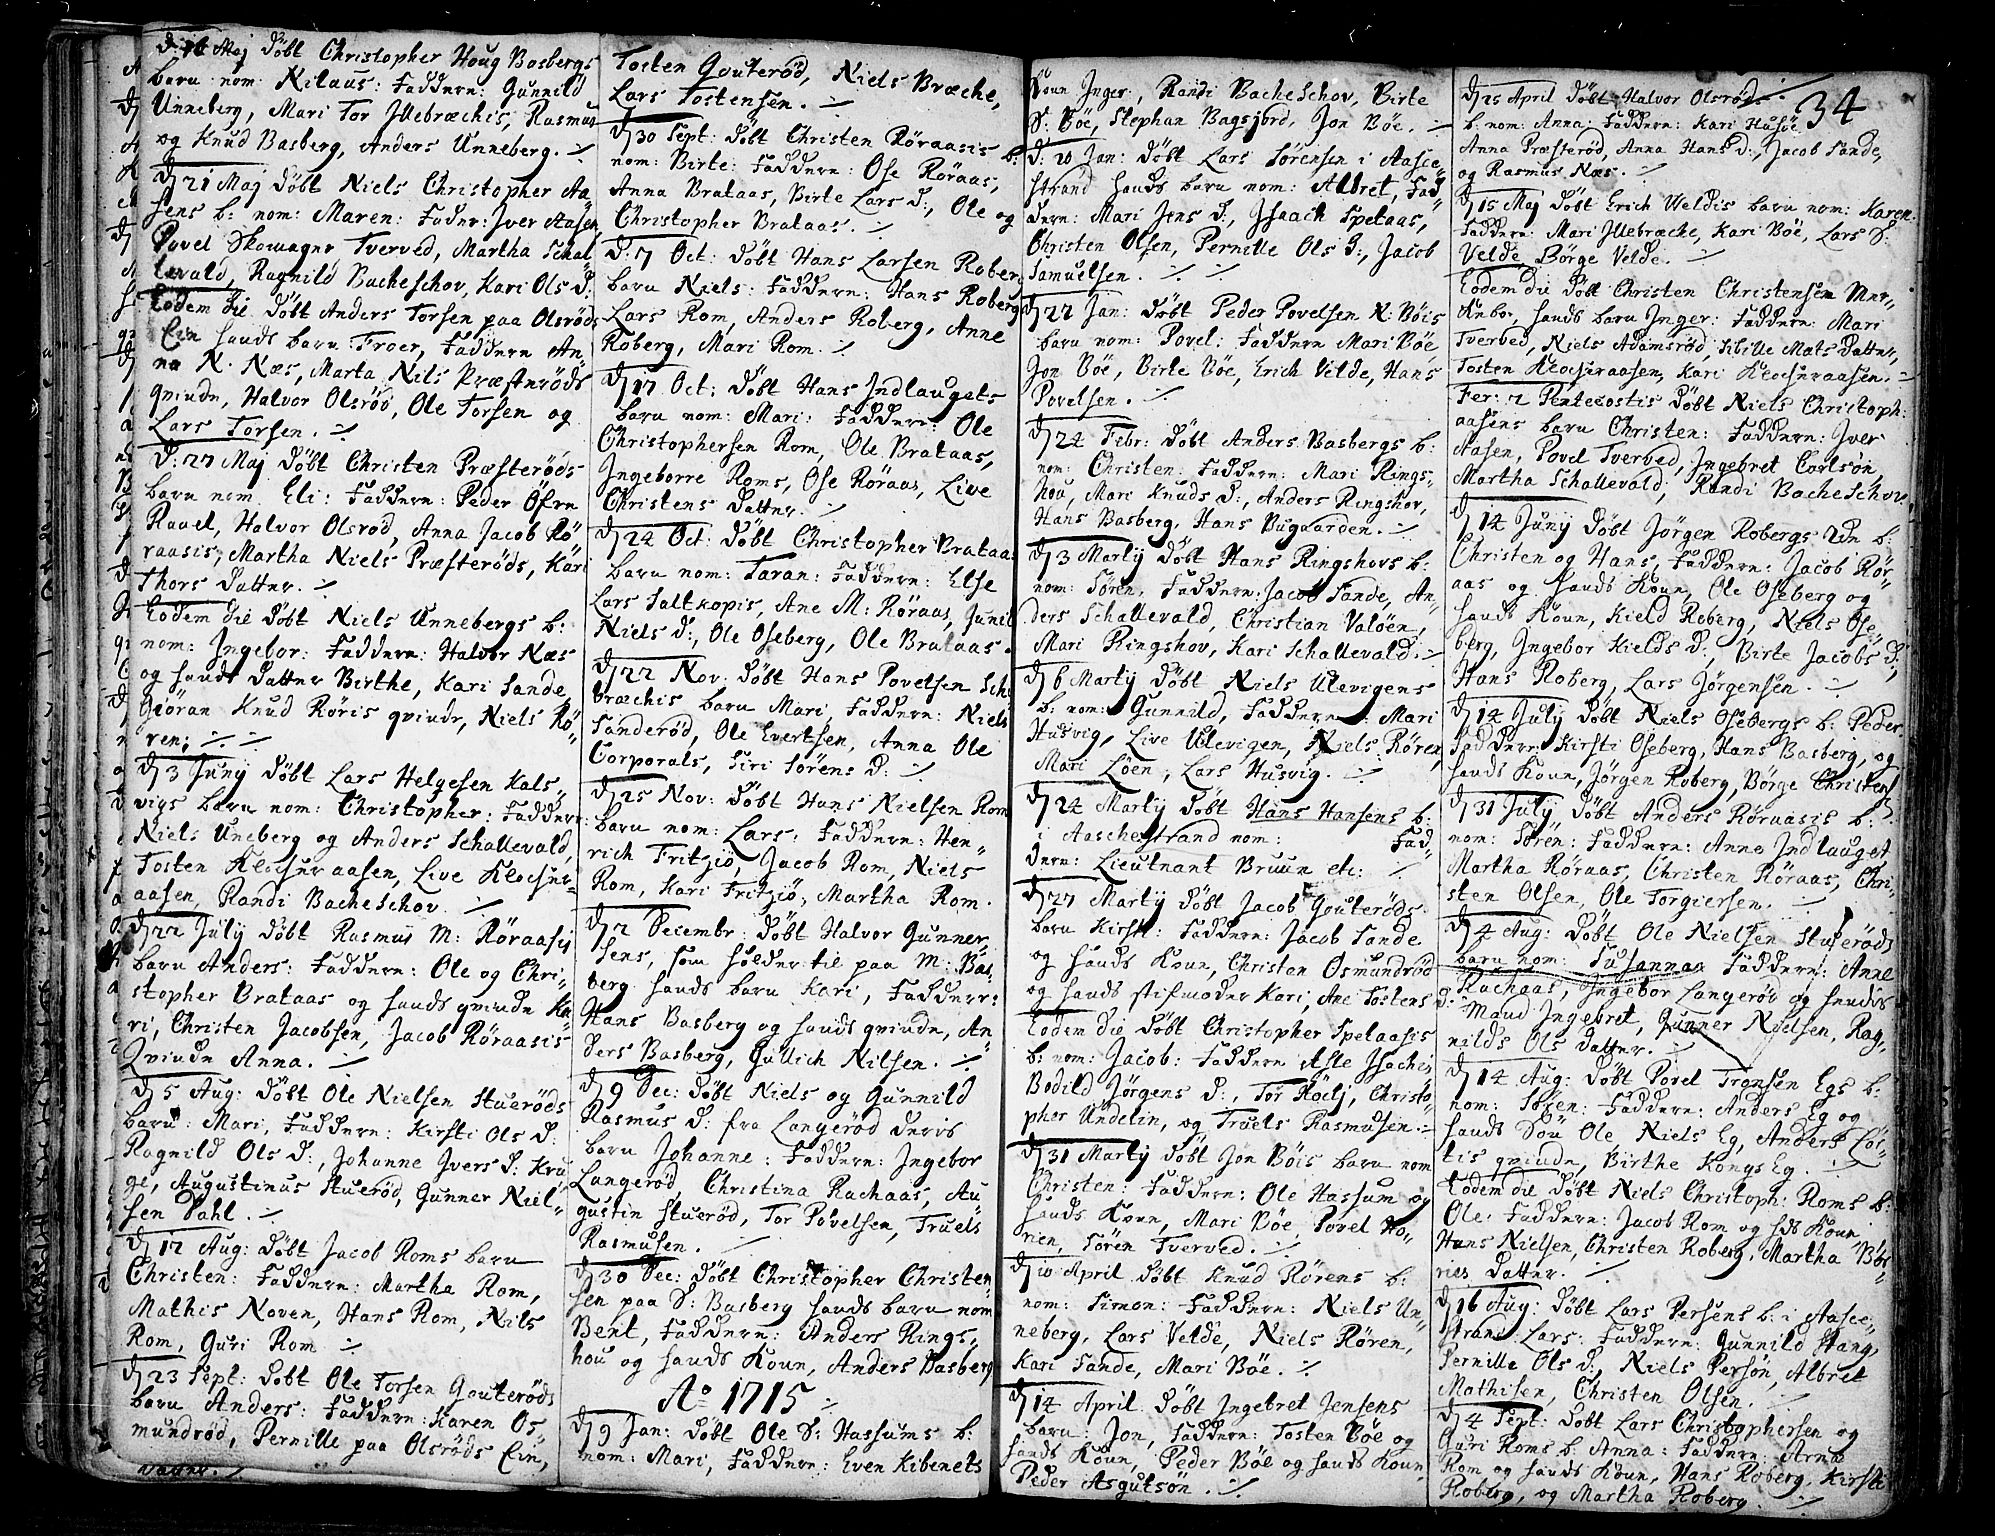 d: 16 Maj döbt Christopher Houg Basbergs
barn nom: Nilaus: Faddere: Gunnild
Unneberg, Mari Tor Illebræchis, Rasmus
og Knud Basberg, Anders Unneberg.
d 21 Maj döbt Niels Christopher Aa-
sens b: nom: Maren: Fadner: Iver Aasen
Povel Skomager Tverved, Martha Schal-
levald, Ragnild Bacheschov, Kari Ols D:
Eodem die döbt Anders Torsen paa Olsröds
Ein hands barn Froer, Faddere An-
na N. Næs, Marta Nils Præsteröds
qvinde, Halvor Olsröd, Ole Torsen og
Lars Torsen.
D: 27 Maj döbt Christen Præsteröds
barn nom Eli: Faddere: Peder Öfre
Ravel, Halvor Olsrod, Anna Jacob Rö-
raasis, Martha Niels Præsteröds, Kari
Thors datter.
Eodem die döbt Niels Unnebergs b:
nom: Ingebor: Faddere: Halvor Næs
og hands datter Birthe, Kari Sande,
Giöran Knud Röris qvinde, Niels Rö-
ren;
d 3 Junij döbt Lars Helgesen Kals-
vigs barn nom: Christopher: Faddere:
Niels Uneberg og Anders Schallevald,
Tosten Klocheraasen, Live Klocher-
aasen, Randi Bacheschov
d 22 Julij döbt Rasmus M: Röraasis
barn Anders: Faddere: Ole og Chri-
stopher Brataas og hands qvinde Ka-
ri, Christen Jacobsen, Jacob Röraasis
Qvinde Anna.
d 5 Aug: döbt Ole Nielsen Stueröds
barn: Mari, Faddere: Kirsti Ols D:
Ragnild Ols D:, Johanne Ivers D: Kru-
ge, Augustinus Stueröd, Gunner Niel-
sen Dahl.
d 12 Aug: döbt Jacob Roms barn
Christen: Faddere: Martha Rom,
Mathis Noven, Hans Rom, Nils
Rom, Guri Rom
d 23 Sept: döbt Ole Torsen Gouteröds
barn Anders: Faddere: Karen Os-
mundröd, Pernille paa Olsröds Ein,
Tosten Gouteröd, Niels Bræche,
Lars Tostensen.
d 30 Sept: döbt Christen Röraasis b:
nom: Birte: Faddere: Ose Röraas,
Anna Brataas, Birte Lars D:, Ole og
Christopher Brataas.
d: 7 Oct: döbt Hans Larsen Roberg
barn Niels: Faddere: Hans Roberg
Lars Rom, Anders Roberg, Anne
Roberg, Mari Rom.
d 17 Oct: döbt Hans Indlaugets
barn nom: Mari: Faddere: Ole
Christophersen Rom, Ole Brataas,
Ingeborre Roms, Ose Röraas, Live
Christens datter.
d 24 Oct: döbt Christopher Brataas
barn nom: Taran: Faddere: Else
Lars Saltkopis, Ane M: Röraas, Junil
Niels D:, Ole Oseberg, Ole Brataas.
d 22 Nov: döbt Hans Povelsen Schi-
bræchis barn Mari, Faddere: Niels
Sanderöd, Ole Evertsen, Anna Ole
Corporals, Siri Sörens D:
d 25 Nov: döbt Hans Nielsen Rom
barn nom: Lars: Faddere: Hen-
rich Fritziö, Jacob Rom, Niels
Rom, Kari Fritziö, Martha Rom.
d 2 Decembr: döbt Halvor Gunner-
sens, som holder til paa M: Bas-
berg hands barn Kari, Faddere:
Hans Basberg og hands qvinde, An-
ders Basberg, Gullich Nilsen.
d 9 Dec: döbt Niels og Gunnild
Rasmus D: fra Langeröd deris
barn Johanne: Faddere: Ingebor
Langeröd, Christina Rachaas, Au-
gustin Stueröd, Tor Povelsen, Truels
Rasmusen.
d 30 Dec: döbt Christopher Christen-
sen paa S: Basberg hands barn nom
Bent, Faddere: Anders Rings-
hou og hands Koun, Anders Basberg
Ao 1715
d 9 Jan: döbt Ole S: Hassums b:
nom: Mari, Faddere: Even Kibenets
Koun Inger, Randi Bacheschov, Birte
S: Böe, Stephan Bagsjord, Jon Böe.
D: 20 Jan: döbt Lars Sörensen i Aasce-
strand hands barn nom: Albret, Fad-
dere: Mari Jens D:, Isaach Spetaas,
Christen Olsen, Pernille Ols D:, Jacob
Samuelsen.
d 27 Jan: döbt Peder Povelsen N: Böis
barn nom: Povel: Faddere Mari Böe
Jon Böe, Birte Böe, Erich Vilde, Hans
Povelsen.
d 24 Febr: döbt Anders Basbergs b:
nom: Christen: Faddere: Mari Rings-
hou, Mari Knuds D:, Anders Ringshov,
Hans Basberg, Hans Bugaarden.
d 3 Martij döbt Hans Ringshovs b:
nom: Sören, Faddere: Jacob Sande, An-
ders Schallevald, Christian Valöen,
Mari Ringshov, Kari Schallevald.
d 6 Martij döbt Niels Ulevigens
b: nom: Gunnild, Faddere: Mari
Husvig, Live Ulevigen, Niels Rören,
Mari Löen, Lars Husvig.
d 24 Martij döbt Hans Hansens b:
i Aaschestrand nom: Fad-
dere: Lieutnant Bruun etc:
d 27 Martij döbt Jacob Gouteröds
barn Kirsti: Faddere: Jacob Sande
og hands Koun, Christen Osmundröd
og hands stifmoder Kari, Ane Tostens D:
Eodem die döbt Christopher Spetaasis
b: nom: Jacob: Faddere Asle Isachs,
Bodild Jörgens D:, Tor Röelj, Christo-
pher Undelin, og Truels Rasmusen.
d 31 Martij döbt Jon Böis barn nom
Christen: Faddere: Ole Hassum og
hands Koun, Mari Böe, Povel No-
rien, Sören Tverved.
d 10 April döbt Knud Rörens b:
nom: Simon: Faddere: Niels Un-
neberg, Lars Velde, Niels Rören,
Kari Sande, Mari Böe.
d 14 April döbt Ingebret Jensens
barn: Jon, Faddere: Tosten Böe og
hands Koun, Peder Böe og hands Koun
Peder Asgutsön.
34
d 25 April döbt Halvor Olsröds
b: nom: Anna: Faddere: Kari Husöe,
Anna Præsteröd, Anna Hans D:, Jacob Sande,
og Rasmus Næs.
d 15 Maj döbt Erich Veldis barn nom: Karen
Faddere: Mari Illebræche, Kari Böe, Lars S:
Velde, Börge Velde.
Eodem die döbt Christen Christensen Mer-
kebo, hands barn Inger: Faddere: Mari
Tverved, Niels Adamsröd, Sibille Mats datter,
Tosten Klocheraasen, Kari Klocheraasen.
Fer: 2 Pentecostis döbt Niels Christoph:
aasens barn Christen: Faddere: Iver
Aasen, Povel Tverved, Ingebret Carlsön,
Martha Schallevald, Randi Bacheschov
d 14 Junij döbt Jörgen Robergs 2de b:
Christen og Hans, Faddere: Jacob Rör-
aas og hands Koun, Ole Oseberg og
hands Koun, Kield Roberg, Niels Ose-
berg, Ingebor Kields D:, Birte Jacobs D:,
Hans Roberg, Lars Jörgensen.
d 14 July döbt Niels Osebergs b: Peder,
Faddere: Kirsti Oseberg, Hans Basberg, og
hands Koun, Jörgen Roberg, Börge Christens
d 31 July döbt Anders Röraasis b:
nom: Sören: Faddere: Anne Indlauget
Martha Röraas, Christen Röraas, Chri-
sten Olsen, Ole Torgiersen.
d 4 Aug: döbt Ole Nielsen Stueröds
barn nom: Susanna: Faddere: Anne
Rachaas, Ingebor Langeröd og hendes
Mand Ingebret, Gunner Nielsen, Rag-
nilds Ols datter.
d 14 Aug: döbt Povel Tronsen Egs b:
nom: Sören: Faddere: Anders Eg og
hands Sön Ole Niels Eg, Anders Los-
tis qvinde, Birthe Kongs Eg.
Eodem die döbt Niels Christoph: Roms b:
Ole, Faddere: Jacob Rom og hds Koun
Hans Nielsen, Christen Roberg, Martha Bör-
ries datter.
d 16 Aug: döbt Lars Persens b: i Aasce-
strand Lars: Faddere: Gunnild Stang,
Pernille Ols D:, Niels Persön, Albret
Mathisen, Christen Olsen.
d 4 Sept: döbt Lars Christophersen og
Guri Roms b: Anna: Faddere: Arne
Rom og hands Koun, Hans Roberg, Kirsti
Roberg, og Martha Roberg.